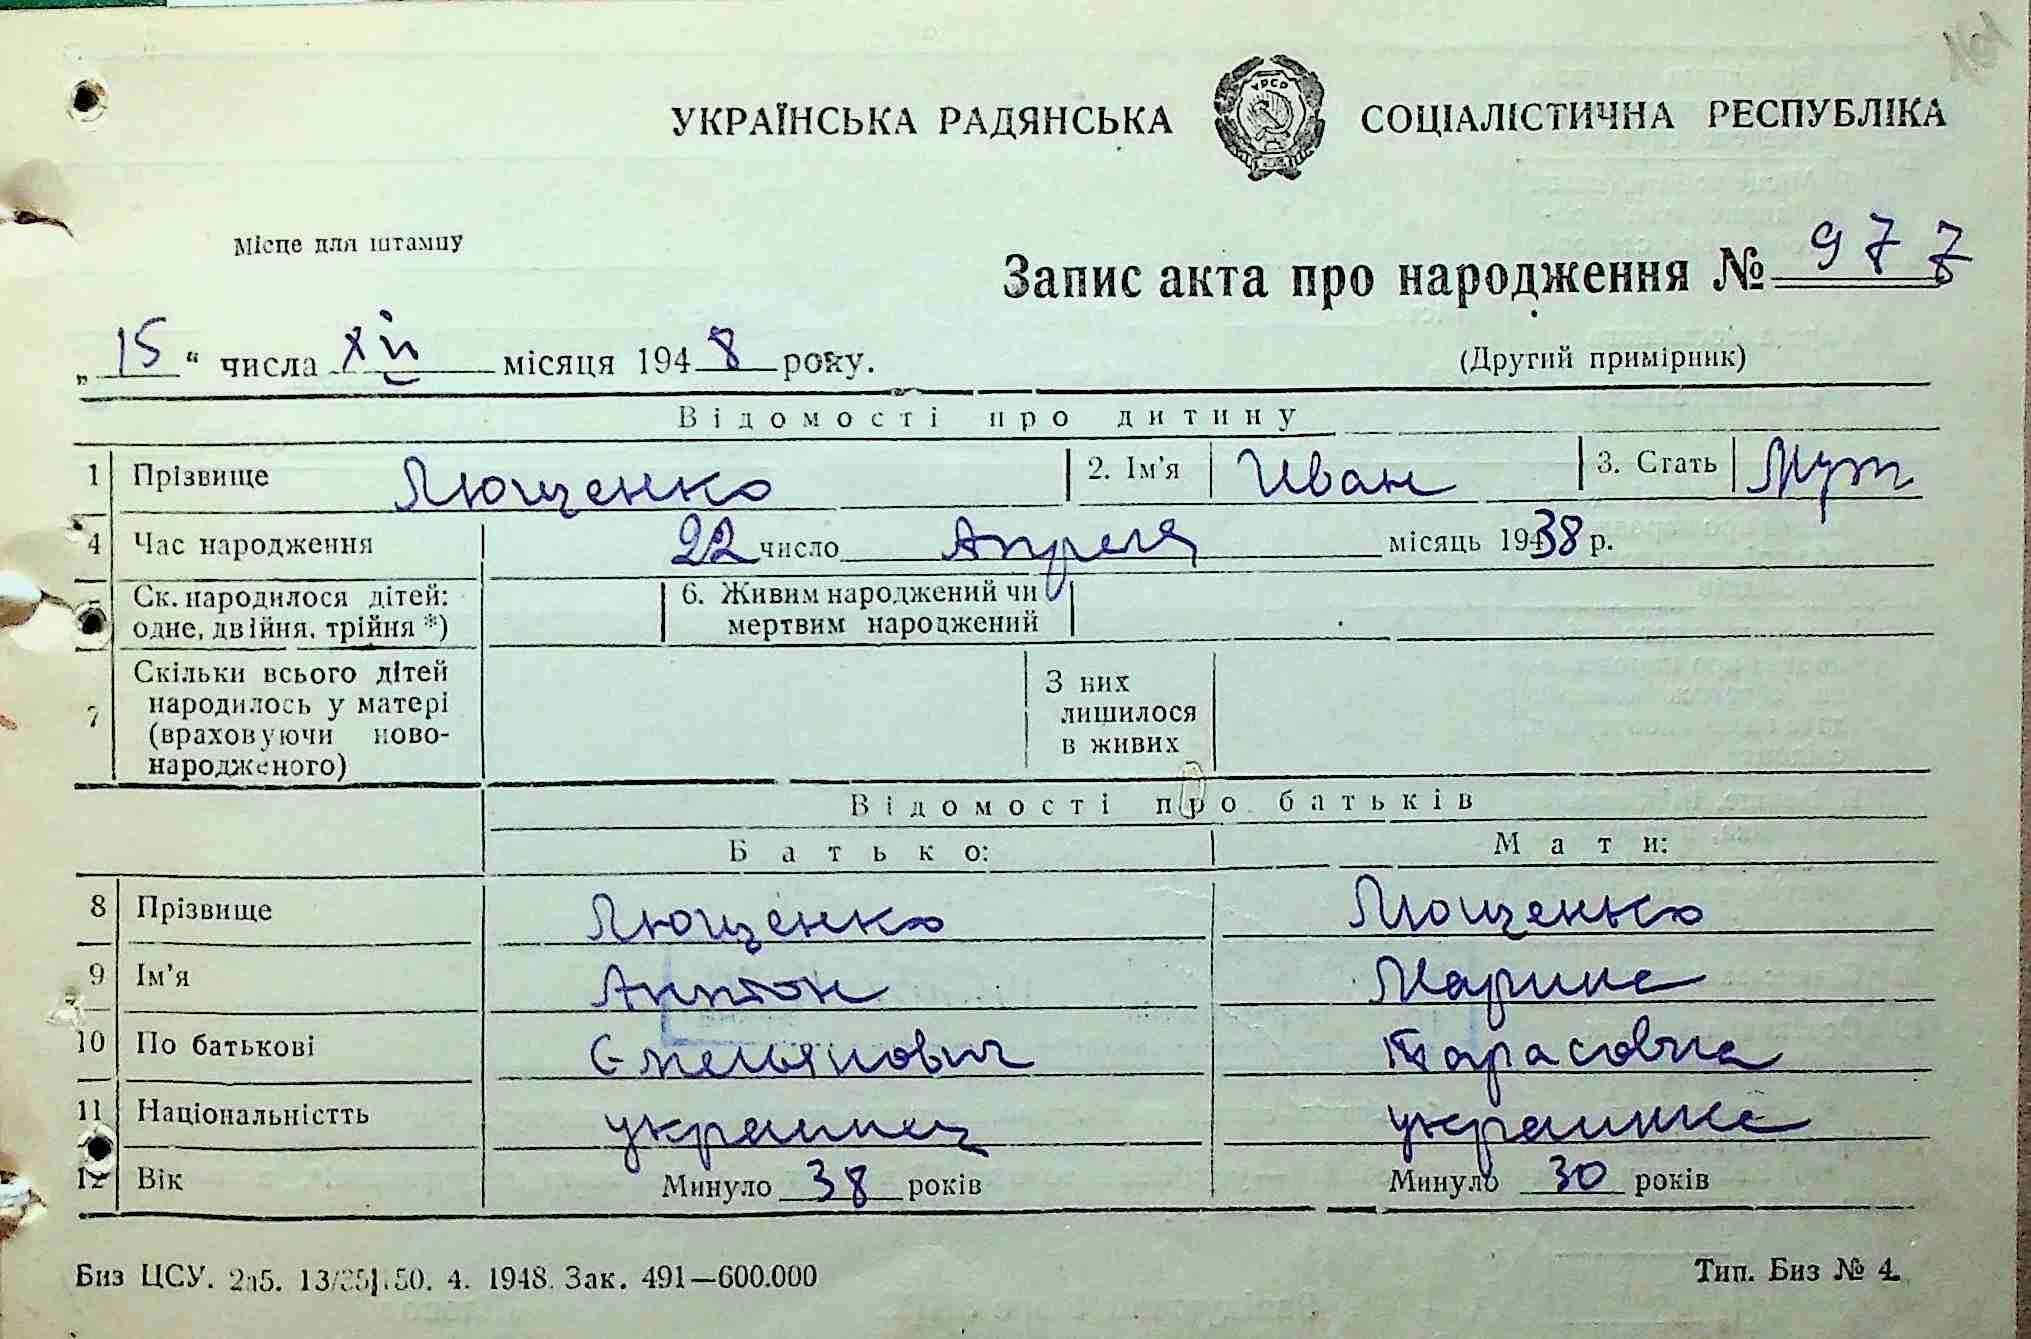 УКРАЇНСЬКА РАДЯНСЬКА СОЦІАЛІСТИЧНА РЕСПУБЛІКА
УРСР
Місце для штампу
Запис акта про народження № 977
„15“ числа XII місяця 1948 року.
(Другий примірник)
Відомості про дитину
1 Прізвище Лющенко 2. Ім'я Иван 3. Стать Муж
4 Час народження 22 число Апреля місяць 1938 р.
5 Ск. народилося дітей: одне, двійня, трійня *) 6. Живим народжений чи мертвим народжений
7 Скільки всього дітей народилось у матері (враховуючи новонародженого) З них лишилося в живих
Відомості про батьків
Батько: Мати:
8 Прізвище Лющенко Лющенко
9 Ім'я Антон Марина
10 По батькові Емельянович Тарасовна
11 Національністть украинец украинка
12 Вік Минуло 38 років Минуло 30 років
Биз ЦСУ. 50. 4. 1948. Зак. 491—600.000 Тип. Биз № 4.